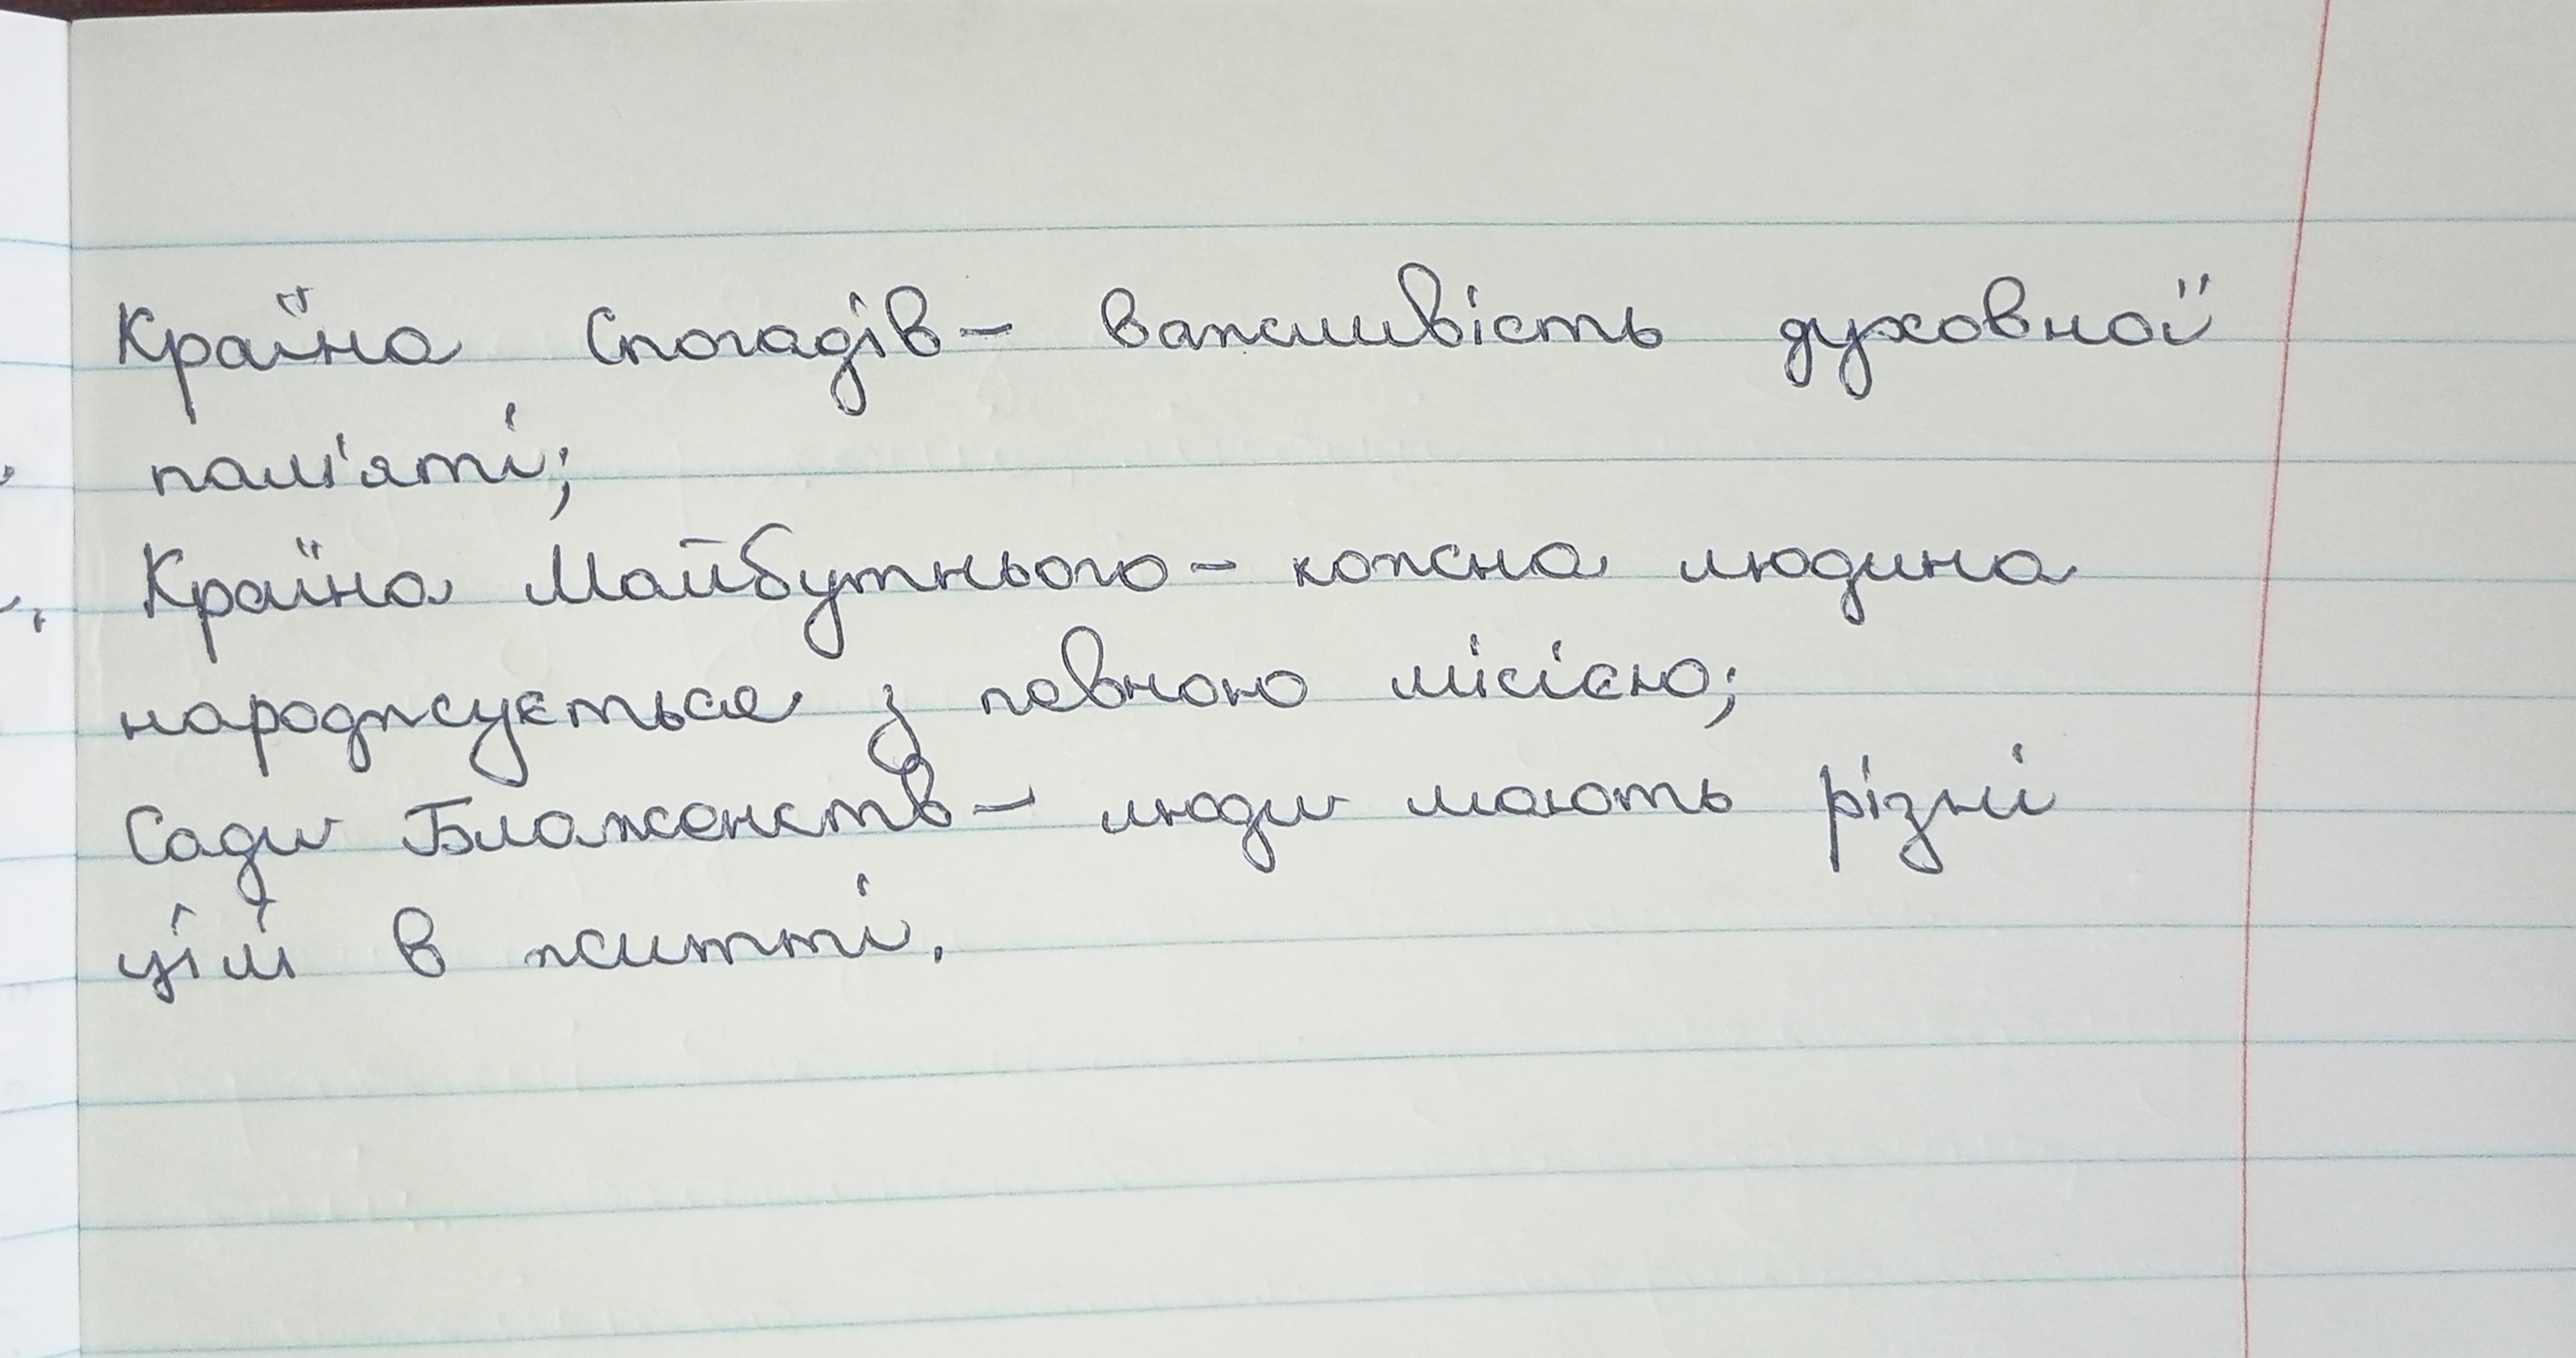 Країна Спогадів – важливість духовної
пам'яті;
Країна Майбутнього – кожна людина
народжується з певною місією;
Сади Блаженств – люди мають різні
цілі в житті.